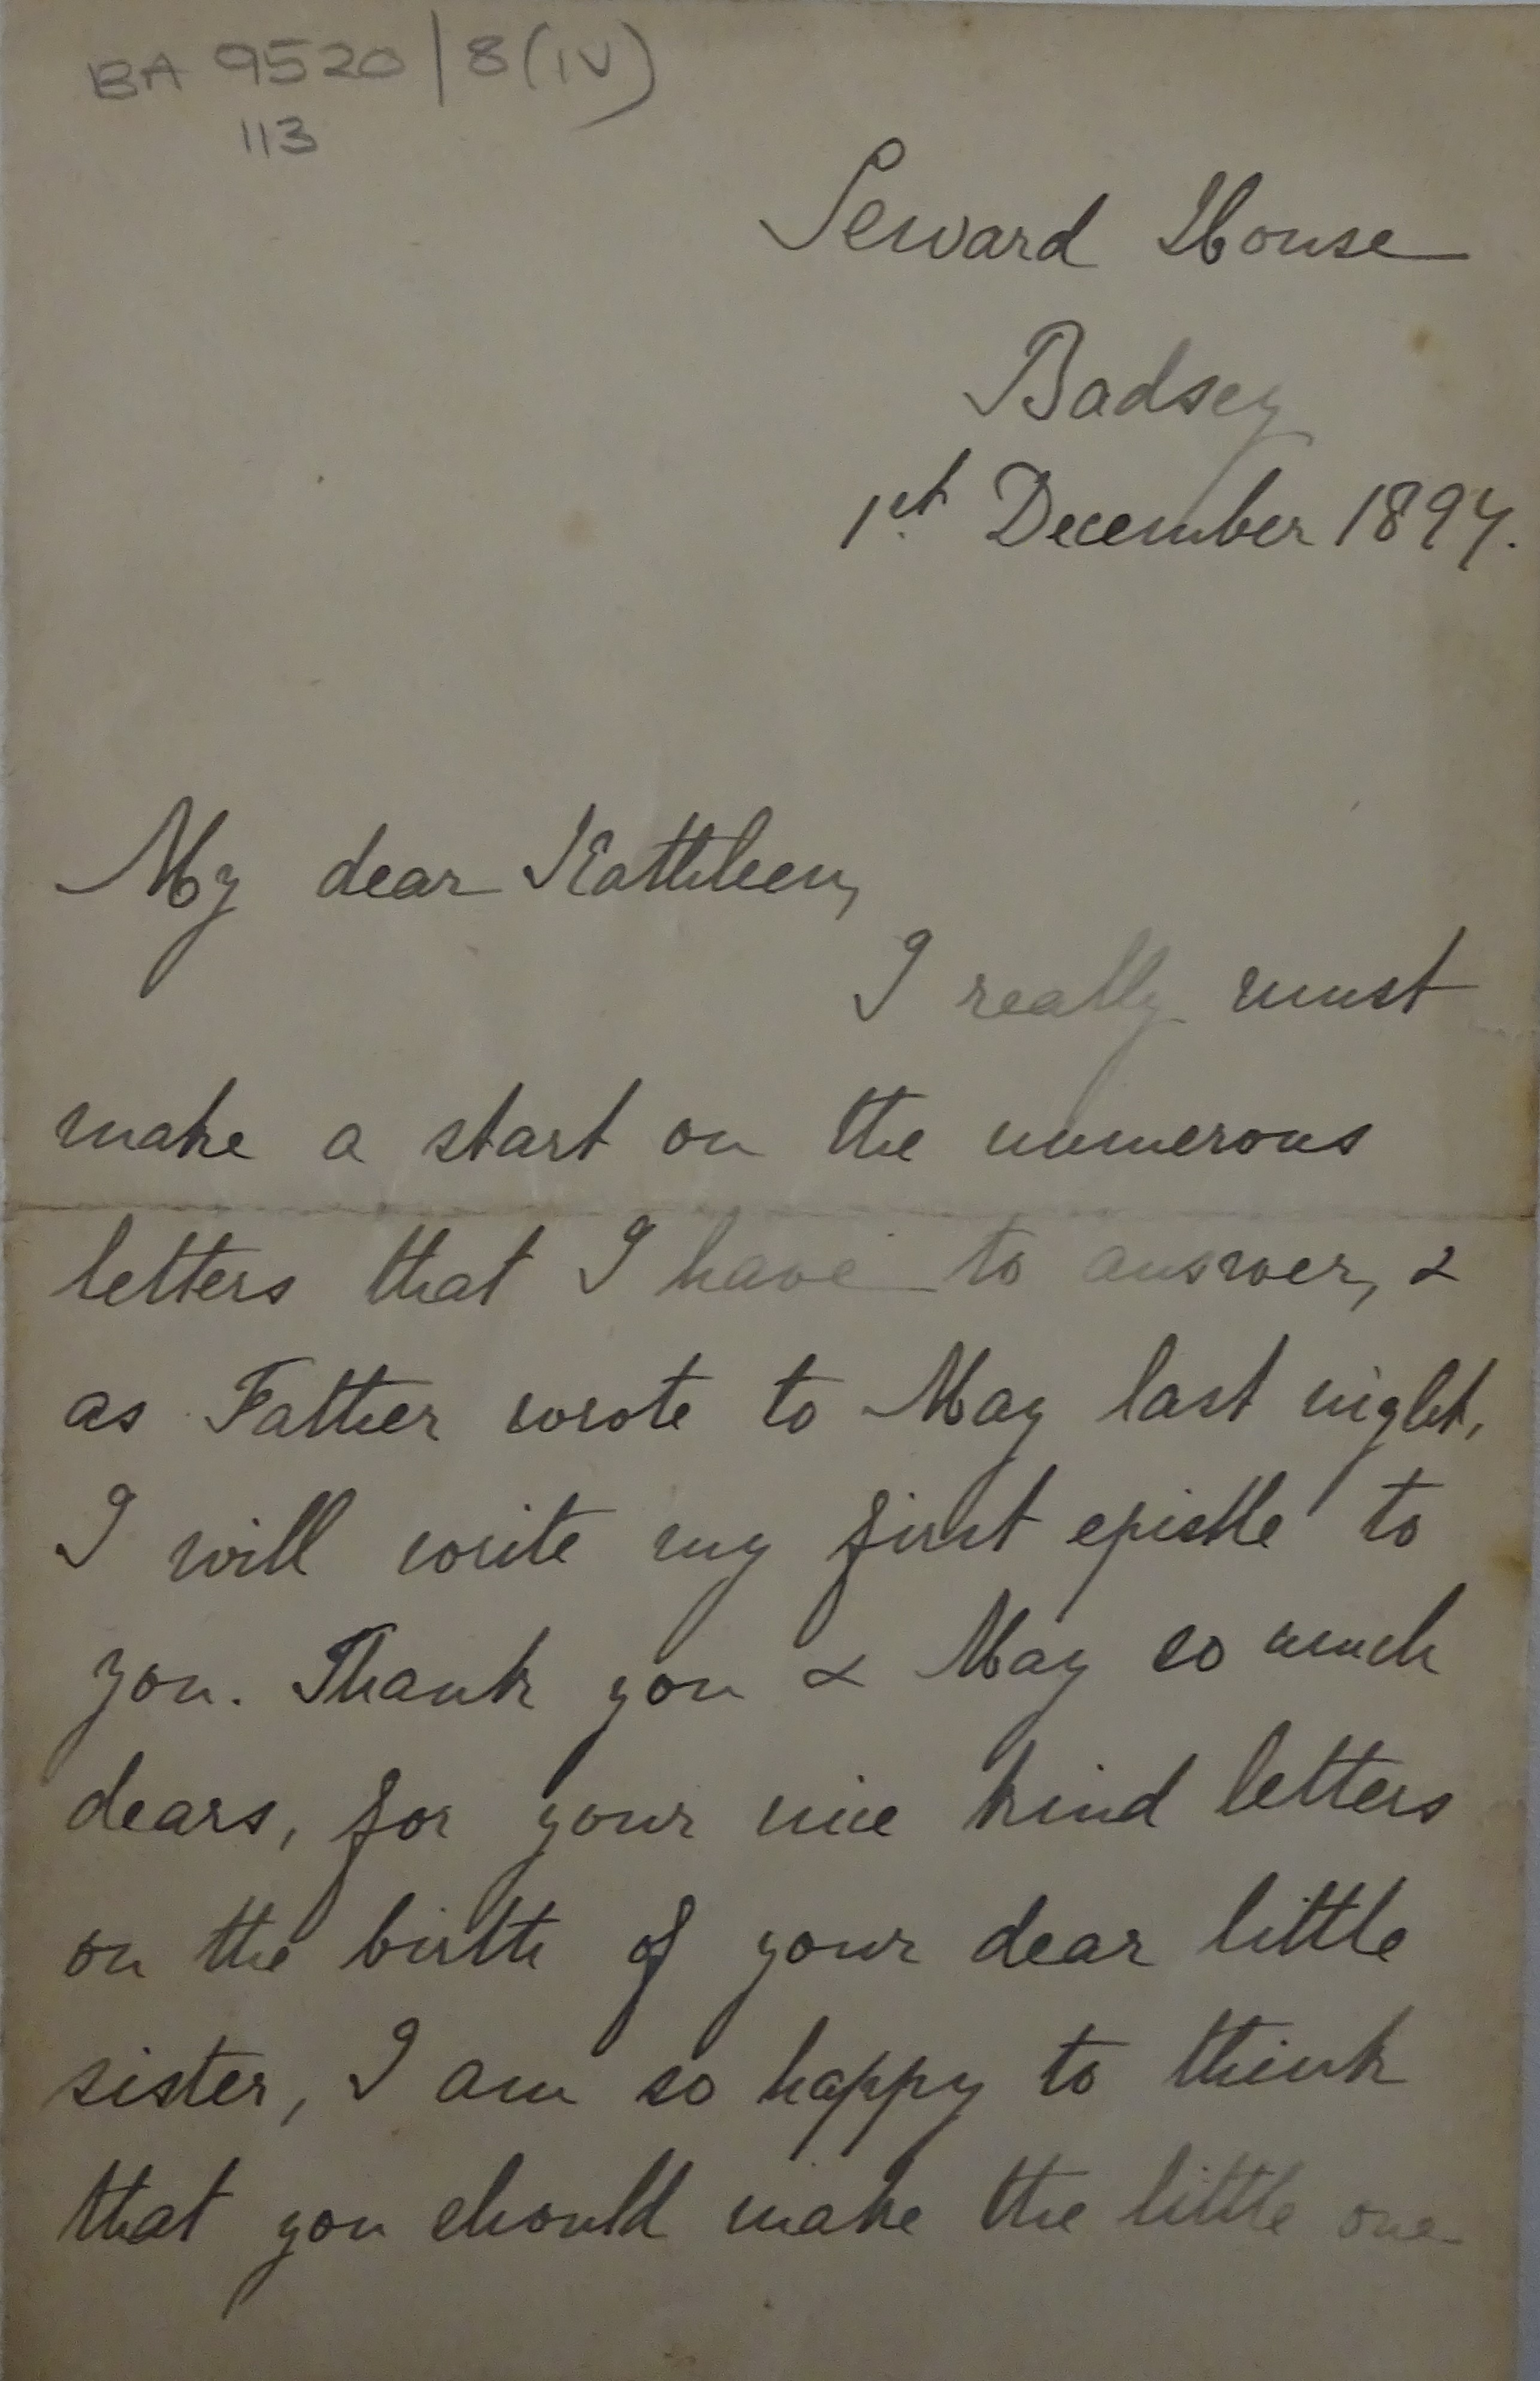 BA 9520/8(IV)
113
Seward House
Badsey
1st December 1897.
My dear Kathleen,
I really must
make a start on the numerous
letters that I have to answer, &
as Father wrote to May last night,
I will write my first epistle to
you. Thank you & May so much
dears, for your nice kind letters
on the birth of your dear little
sister, I am so happy to think
that you should make the little one